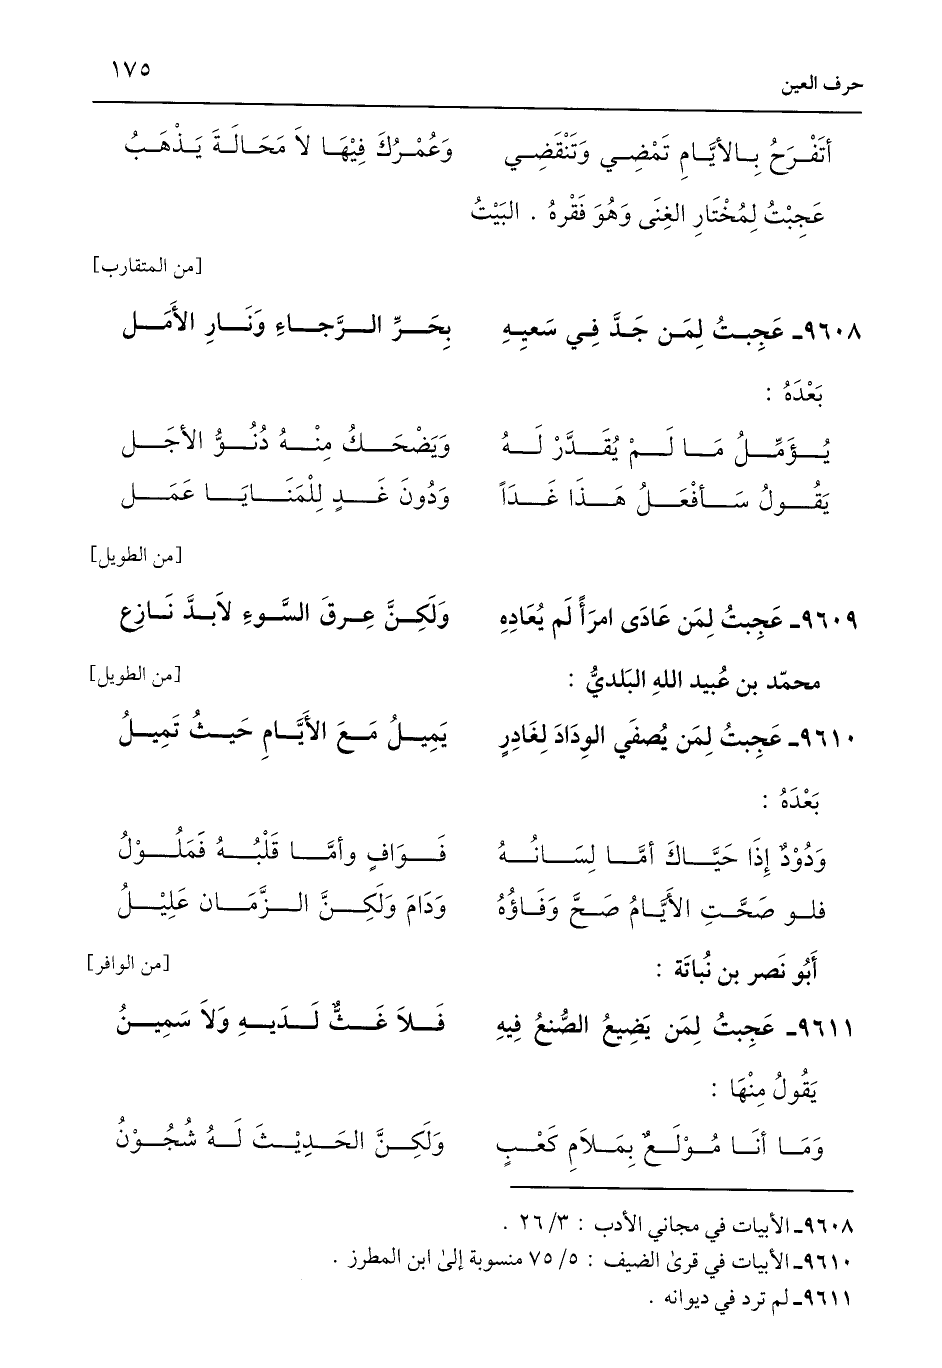 حرف العين ١٧٥
أتَفْـرَحُ بِـالأيَّـامِ تَمْضِـي وَتَنْقَضِـي وَعُمْـرُكَ فِيْهَـا لاَ مَحَـالَـةَ يَـذْهَـبُ
عَجِبْتُ لِمُخْتَارِ الغِنَى وَهُوَ فَقْرهُ . البَيْتُ
[من المتقارب]
٩٦٠٨ـ عَجِبتُ لِمَن جَدَّ فِي سَعيِهِ بِحَرِّ الرَّجاءِ وَنَارِ الأَمَل
بَعْدَهُ :
يُؤَمِّلُ مَا لَمْ يُقَدَّرْ لَهُ وَيَضْحَكُ مِنْهُ دُنُوُّ الأجَل
يَقُولُ سَأفْعَلُ هَذَا غَدَاً وَدُونَ غَدٍ لِلْمَنَايَا عَمَل
[من الطويل]
٩٦٠٩ـ عَجِبتُ لِمَن عَادَى امرَأً لَم يُعَادِهِ وَلَكِنَّ عِرقَ السَّوءِ لاَبدَّ نَازِع
محمّد بن عُبيد اللهِ البَلديُّ : [من الطويل]
٩٦١٠ـ عَجِبتُ لِمَن يُصفَي الوِدَادَ لِغَادِرٍ يَمِيلُ مَعَ الأَيَّامِ حَيثُ تَمِيلُ
بَعْدَهُ :
وَدُوْدٌ إِذَا حَيَّاكَ أمَّا لِسَانُهُ فَوَافٍ وأمَّا قَلْبُهُ فَمَلُوْلُ
فلو صَحَّتِ الأيَّامُ صَحَّ وَفَاؤُهُ وَدَامَ وَلَكِنَّ الزَّمَانَ عَلِيْلُ
أَبُو نَصر بن نُباتَة : [من الوافر]
٩٦١١ـ عَجِبتُ لِمَن يَضِيعُ الصُّنعُ فِيهِ فَلاَ غَثٌّ لَدَيهِ وَلاَ سَمِينُ
يَقُولُ مِنْهَا :
وَمَا أنَا مُوْلَعٌ بِمَلاَمِ كَعْبٍ وَلَكِنَّ الحَدِيْثَ لَهُ شُجُوْنُ
٩٦٠٨ـ الأبيات في مجاني الأدب : ٣/ ٢٦ .
٩٦١٠ـ الأبيات في قرىٰ الضيف : ٥/ ٧٥ منسوبة إلىٰ ابن المطرز .
٩٦١١ـ لم ترد في ديوانه .